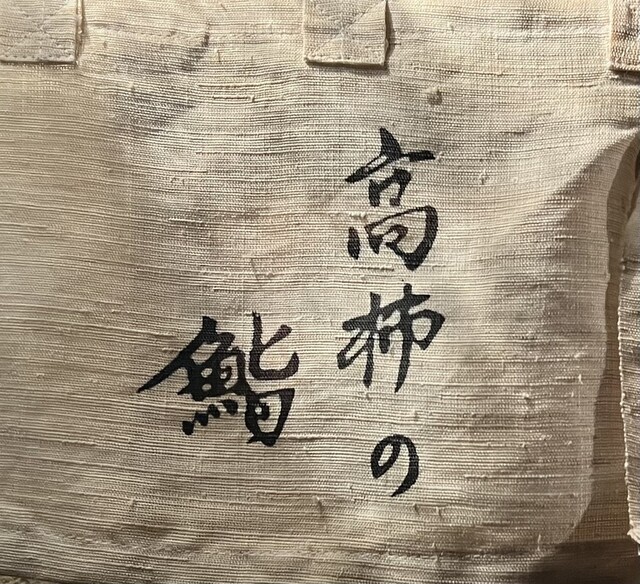 高柿の
鮨